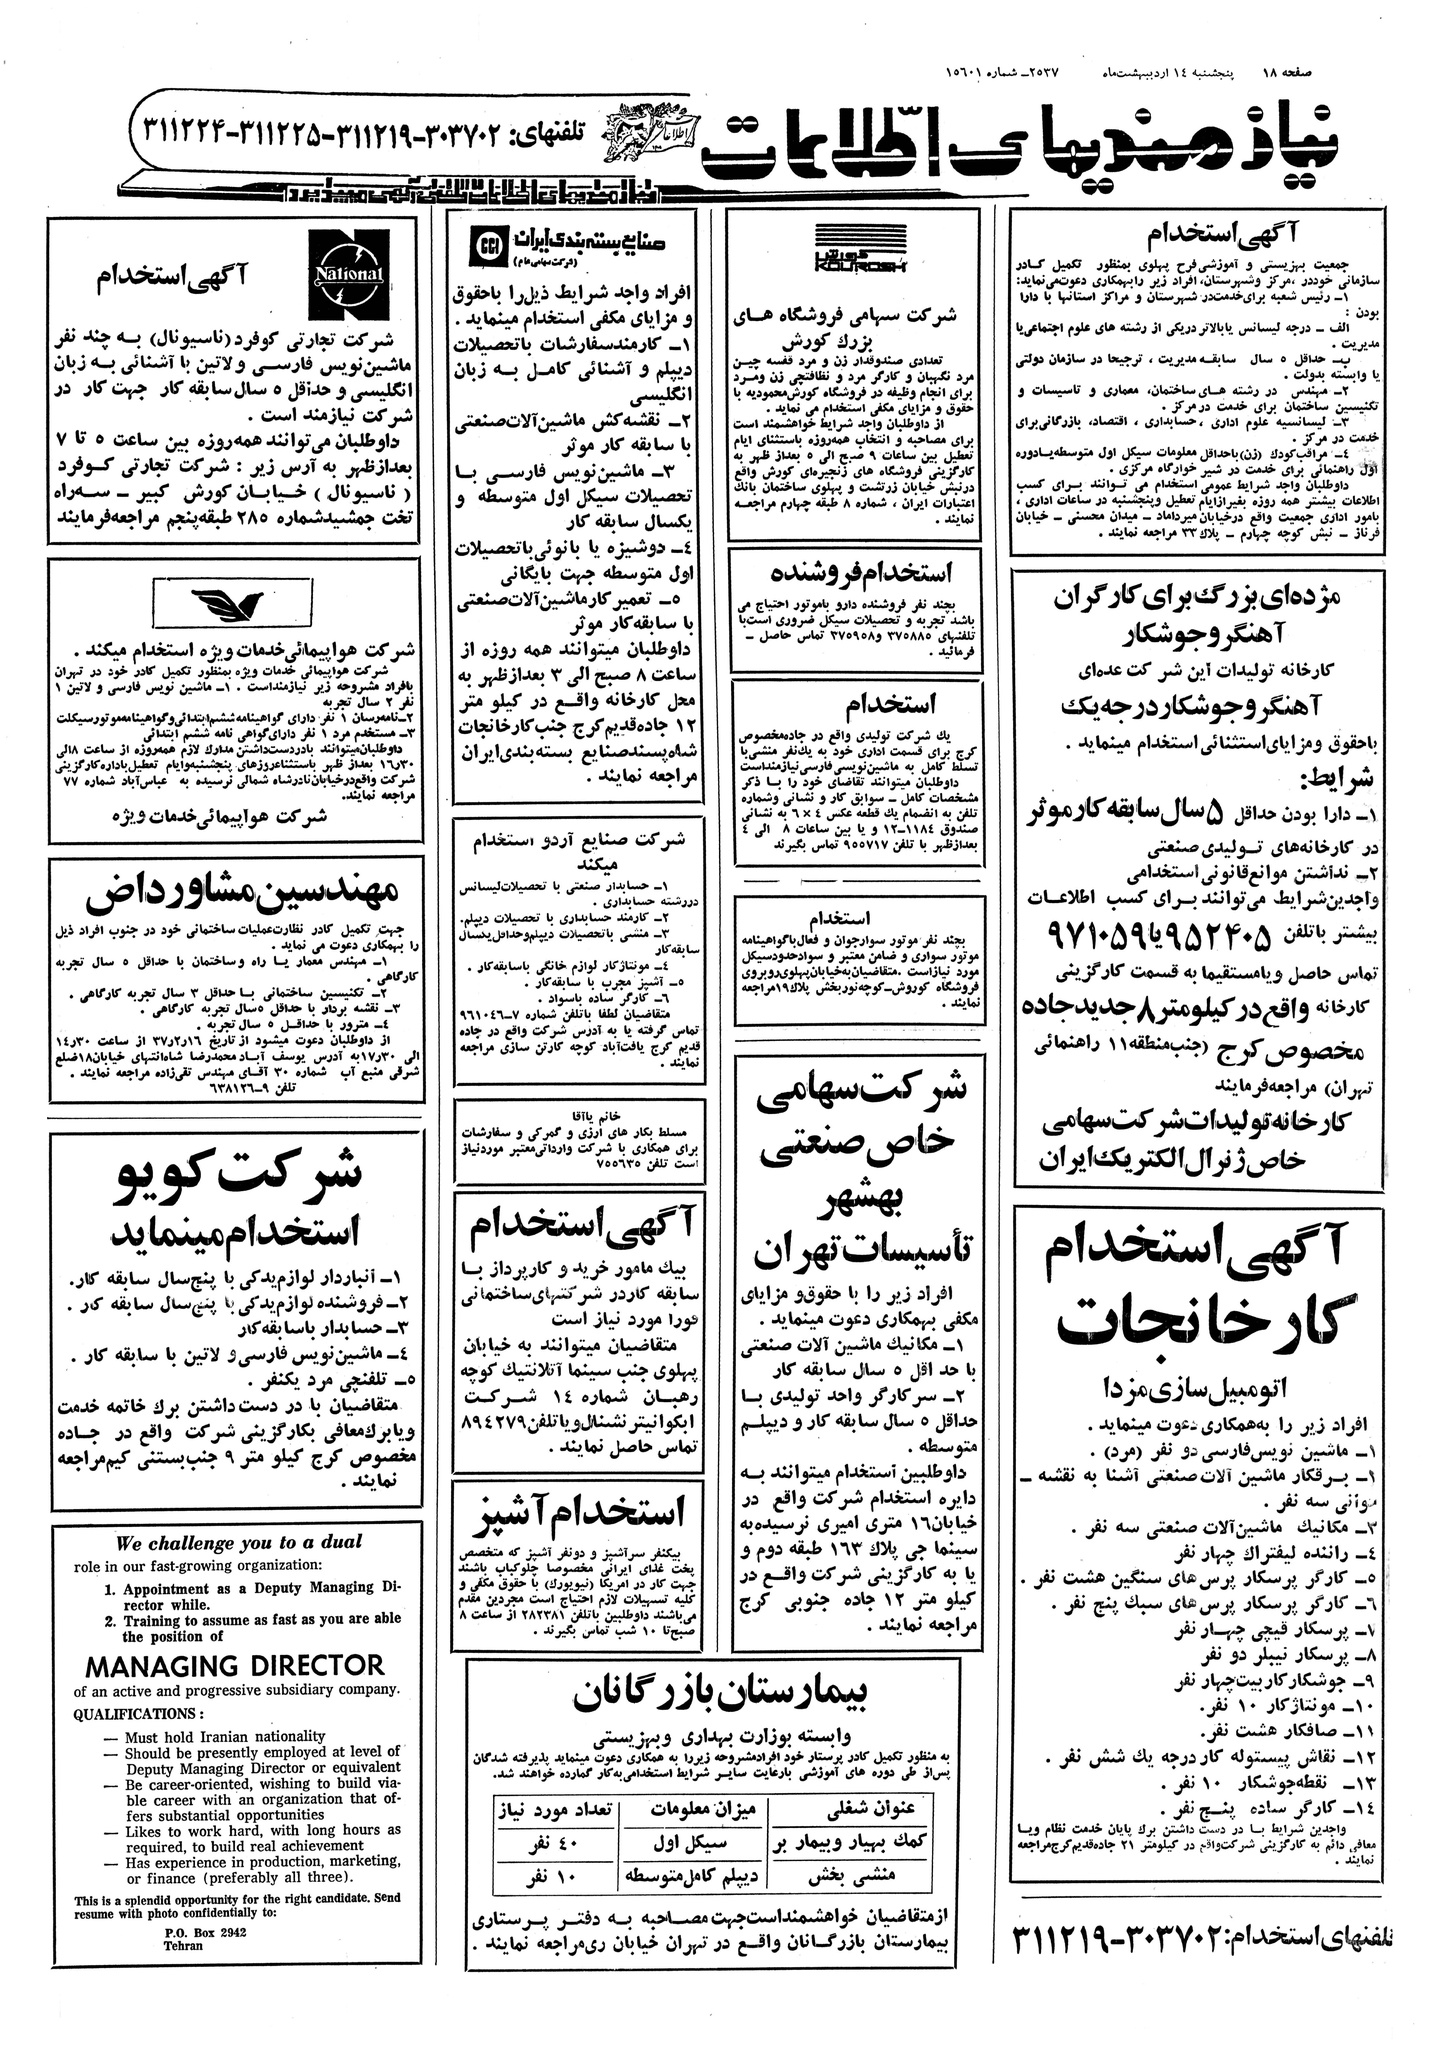 صفحه ۱۸ پنجشنبه ۱٤ اردیبهشت‌ماه ۲۵۳۷ــ شماره ۱۵٦۰۱
نیازمندیهای اطلاعات
تلفنهای: ۳۰۳۷۰۲-۳۱۱۲۱۹-۳۱۱۲۲۵-۳۱۱۲۲۴
نیازمندیهای اطلاعات تلفنی آگهی میپذیرد
آگهی استخدام
جمعیت بهزیستی و آموزشی فرح پهلوی بمنظور تکمیل کادر
سازمانی خوددر ،مرکز وشهرستان، افراد زیر رابهمکاری دعوت‌می‌نماید:
۱ــ رئیس شعبه برای‌خدمت‌در شهرستان و مراکز استانها با دارا
بودن :
الف ــ درجه لیسانس یابالاتر دریکی از رشته های علوم اجتماعی‌یا
مدیریت .
ب‌ــ حداقل ۵ سال سابقه مدیریت ، ترجیحا در سازمان دولتی
یا وابسته بدولت .
۲ــ مهندس در رشته های ساختمان، معماری و تاسیسات و
تکنیسین ساختمان برای خدمت در مرکز .
۳ــ لیسانسیه علوم اداری ، حسابداری ، اقتصاد، بازرگانی‌برای
خدمت در مرکز .
٤ــ مراقب‌کودك (زن)باحداقل معلومات سیکل اول متوسطه‌یادوره
اول راهنمائی برای خدمت در شیر خوارگاه مرکزی .
داوطلبان واجد شرایط عمومی استخدام می توانند برای کسب
اطلاعات بیشتر همه روزه بغیرازایام تعطیل وپنجشنبه در ساعات اداری ،
بامور اداری جمعیت واقع درخیابان میرداماد ــ میدان محسنی ــ خیابان
فرناز ــ نبش کوچه چهارم ــ پلاك ۳۳ مراجعه نمایند .
مژده‌ای بزرگ برای کارگران
آهنگر و جوشکار
کارخانه تولیدات این شرکت عده‌ای
آهنگر و جوشکار درجه یك
باحقوق ومزایای استثنائی استخدام مینماید .
شرایط:
۱ــ دارا بودن حداقل ۵ سال سابقه کار موثر
در کارخانه‌های تولیدی صنعتی
۲ــ نداشتن موانع قانونی استخدامی
واجدین‌شرایط می‌توانند برای کسب اطلاعات
بیشتر باتلفن ۹۵۲۴۰۵ یا ۹۷۱۰۵۹
تماس حاصل ویامستقیما به قسمت کارگزینی
کارخانه واقع در کیلومتر ۸ جدید جاده
مخصوص کرج (جنب منطقه ۱۱ راهنمائی
تهران) مراجعه‌فرمایند
کارخانه تولیدات شرکت سهامی
خاص ژنرال الکتریك ایران
آگهی استخدام
کارخانجات
اتومبیل سازی مزدا
افراد زیر را به‌همکاری دعوت مینماید .
۱ــ ماشین نویس‌فارسی دو نفر (مرد) .
۱ــ برقکار ماشین آلات صنعتی آشنا به نقشه ــ
خوانی سه نفر .
۳ــ مکانیك ماشین‌آلات صنعتی سه نفر .
٤ــ راننده لیفتراك چهار نفر
۵ــ کارگر پرسکار پرس های سنگین هشت نفر .
٦ــ کارگر پرسکار پرس‌های سبك پنج نفر .
۷ــ پرسکار قیچی چهار نفر
۸ــ پرسکار نیبلر دو نفر
۹ــ جوشکار کاربیت چهار نفر
۱۰ــ مونتاژ کار ۱۰ نفر.
۱۱ــ صافکار هشت نفر.
۱۲ــ نقاش پیستوله کار درجه یك شش نفر .
۱۳ــ نقطه‌جوشکار ۱۰ نفر .
۱٤ــ کارگر ساده پنج نفر .
واجدین شرایط با در دست داشتن برك پایان خدمت نظام ویا
معافی دائم به کارگزینی شرکت‌واقع در کیلومتر ۲۱ جاده‌قدیم‌کرج‌مراجعه
نمایند .
تلفنهای استخدام: ۳۰۳۷۰۲-۳۱۱۲۱۹
کورش
KOUROSH
شرکت سهامی فروشگاه های
بزرك کورش
تعدادی صندوقدار زن و مرد قفسه چین
مرد نگهبان و کارگر مرد و نظافتچی زن ومرد
برای انجام وظیفه در فروشگاه کورش‌محمودیه با
حقوق و مزایای مکفی استخدام می نماید .
از داوطلبان واجد شرایط خواهشمند است
برای مصاحبه و انتخاب همه‌روزه باستثنای ایام
تعطیل بین ساعات ۹ صبح الی ۵ بعداز ظهر به
کارگزینی فروشگاه های زنجیره‌ای کورش واقع
درنبش خیابان زرتشت و پهلوی ساختمان بانك
اعتبارات ایران ، شماره ۸ طبقه چهارم مراجعه
نمایند .
استخدام فروشنده
بچند نفر فروشنده دارو باموتور احتیاج می
باشد تجربه و تحصیلات سیکل ضروری است‌با
تلفنهای ۳۷۵۸۸۵ و۳۷۵۹۵۸ تماس حاصل ــ
فرمائید .
استخدام
یك شرکت تولیدی واقع در جاده‌مخصوص
کرج برای قسمت اداری خود به یك‌نفر منشی‌با
تسلط کامل به ماشین‌نویسی فارسی نیازمنداست
داوطلبان میتوانند تقاضای خود را با ذکر
مشخصات کامل ــ سوابق کار و نشانی وشماره
تلفن به انضمام یك قطعه عکس ٤ × ٦ به نشانی
صندوق ۱۱۸٤ــ۱۲ و یا بین ساعات ۸ الی ٤
بعدازظهر با تلفن ۹۵۵۷۱۷ تماس بگیرند
استخدام
بچند نفر موتور سوارجوان و فعال‌باگواهینامه
موتور سواری و ضامن معتبر و سوادحدودسیکل
مورد نیازاست. متقاضیان‌به‌خیابان‌پهلوی‌روبروی
فروشگاه کوروش‌ــ‌کوچه‌نوربخش پلاك۱۹مراجعه
نمایند .
شرکت سهامی
خاص صنعتی
بهشهر
تأسیسات تهران
افراد زیر را با حقوق‌و مزایای
مکفی بهمکاری دعوت مینماید .
۱ــ مکانیك ماشین آلات صنعتی
با حد اقل ۵ سال سابقه کار
۲ــ سرکارگر واحد تولیدی با
حداقل ۵ سال سابقه کار و دیپلم
متوسطه .
داوطلبین استخدام میتوانند به
دایره استخدام شرکت واقع در
خیابان ۱٦ متری امیری نرسیده‌به
سینما جی پلاك ۱٦۳ طبقه دوم و
یا به کارگزینی شرکت واقع در
کیلو متر ۱۲ جاده جنوبی کرج
مراجعه نمایند .
CCI
صنایع بسته بندی ایران
(شرکت سهامی عام)
افراد واجد شرایط ذیل‌را باحقوق
و مزایای مکفی استخدام مینماید .
۱ــ کارمندسفارشات باتحصیلات
دیپلم و آشنائی کامل به زبان
انگلیسی
۲ــ نقشه‌کش ماشین‌آلات‌صنعتی
با سابقه کار موثر
۳ــ ماشین‌نویس فارسی با
تحصیلات سیکل اول متوسطه و
یکسال سابقه کار
٤ــ دوشیزه یا بانوئی‌باتحصیلات
اول متوسطه جهت بایگانی
۵ــ تعمیر کارماشین‌آلات‌صنعتی
با سابقه‌کار موثر
داوطلبان میتوانند همه روزه از
ساعت ۸ صبح الی ۳ بعدازظهر به
محل کارخانه واقع در کیلو متر
۱۲ جاده‌قدیم‌کرج جنب‌کارخانجات
شاه‌پسندصنایع بسته‌بندی‌ایران
مراجعه نمایند .
شرکت صنایع آردو استخدام
میکند
۱ــ حسابدار صنعتی با تحصیلات‌لیسانس
دررشته حسابداری .
۲ــ کارمند حسابداری با تحصیلات دیپلم.
۳ــ منشی باتحصیلات دیپلم‌وحداقل‌یکسال
سابقه‌کار
٤ــ مونتاژکار لوازم خانگی باسابقه‌کار .
۵ــ آشپز مجرب با سابقه‌کار .
٦ــ کارگر ساده باسواد .
متقاضیان لطفا باتلفن شماره ۷ــ۹٦۱۰٤٦
تماس گرفته یا به آدرس شرکت واقع در جاده
قدیم کرج یافت‌آباد کوچه کارتن سازی مراجعه
نمایند .
خانم یاآقا
مسلط بکار های ارزی و گمرکی و سفارشات
برای همکاری با شرکت وارداتی‌معتبر موردنیاز
است تلفن ۷۵۵٦۳۵
آگهی استخدام
بیك مامور خرید و کارپرداز با
سابقه کاردر شرکتهای‌ساختمانی
فورا مورد نیاز است
متقاضیان میتوانند به خیابان
پهلوی جنب سینما آتلانتیك کوچه
رهبان شماره ۱٤ شرکت
ایکوانیتر نشنال‌ویاتلفن ۸۹٤۲۷۹
تماس حاصل نمایند .
استخدام آشپز
بیکنفر سرآشپز و دونفر آشپز که متخصص
پخت غذای ایرانی مخصوصا چلوکباب باشند
جهت کار در امریکا (نیویورك) با حقوق مکفی و
کلیه تسهیلات لازم احتیاج است مجردین مقدم
می‌باشند داوطلبین باتلفن ۲۸۲۳۸۱ از ساعت ۸
صبح‌تا ۱۰ شب تماس بگیرند .
بیمارستان بازرگانان
وابسته بوزارت بهداری وبهزیستی
به منظور تکمیل کادر پرستار خود افرادمشروحه زیررا به همکاری دعوت مینماید پذیرفته شدگان
پس‌از طی دوره های آموزشی بارعایت سایر شرایط استخدامی‌به‌کار گمارده خواهند شد.
عنوان شغلی میزان معلومات تعداد مورد نیاز
کمك بهیار وبیمار بر سیکل اول ٤۰ نفر
منشی بخش دیپلم کامل متوسطه ۱۰ نفر
ازمتقاضیان خواهشمنداست‌جهت‌مصاحبه به دفتر پرستاری
بیمارستان بازرگانان واقع در تهران خیابان ری‌مراجعه نمایند .
National
آگهی استخدام
شرکت تجارتی کوفرد (ناسیونال) به چند نفر
ماشین‌نویس فارسی و لاتین با آشنائی به زبان
انگلیسی و حداقل ۵ سال‌سابقه کار جهت کار در
شرکت نیازمند است .
داوطلبان می‌توانند همه‌روزه بین ساعت ۵ تا ۷
بعدازظهر به آرس زیر : شرکت تجارتی کوفرد
( ناسیونال ) خیابان کورش کبیر ــ سه‌راه
تخت جمشیدشماره ۲۸۵ طبقه‌پنجم مراجعه‌فرمایند
شرکت هواپیمائی‌خدمات ویژه استخدام میکند .
شرکت هواپیمائی خدمات ویژه بمنظور تکمیل کادر خود در تهران
بافراد مشروحه زیر نیازمنداست . ۱ــ ماشین نویس فارسی و لاتین ۱
نفر ۲ سال تجربه
۲ــ‌نامه‌رسان ۱ نفر دارای گواهینامه ششم‌ابتدائی‌وگواهینامه‌موتورسیکلت
۳ــ مستخدم مرد ۱ نفر دارای‌گواهی نامه ششم ابتدائی
داوطلبان‌میتوانند بادردست‌داشتن مدارك لازم همه‌روزه از ساعت ۸الی
۱٦ر۳۰ بعداز ظهر باستثناءروزهای پنجشنبه‌وایام تعطیل‌باداره‌کارگزینی
شرکت واقع‌درخیابان‌نادرشاه شمالی نرسیده به عباس‌آباد شماره ۷۷
مراجعه نمایند.
شرکت هواپیمائی‌خدمات ویژه
مهندسین مشاور داض
جهت تکمیل کادر نظارت‌عملیات ساختمانی خود در جنوب افراد ذیل
را بهمکاری دعوت می نماید .
۱ــ مهندس معمار یا راه وساختمان با حداقل ۵ سال تجربه
کارگاهی .
۲ــ تکنیسین ساختمانی با حداقل ۳ سال تجربه کارگاهی .
۳ــ نقشه بردار با حداقل ۵سال تجربه کارگاهی .
٤ــ مترور با حداقل ۵ سال تجربه .
از داوطلبان دعوت میشود از تاریخ ۱٦ر۲ر۳۷ از ساعت ۳۰ر۱٤
الی ۳۰ر۱۷به آدرس یوسف آباد محمدرضا شاه‌انتهای خیابان۱۸ضلع
شرقی منبع آب شماره ۳۰ آقای مهندس تقی‌زاده مراجعه نمایند .
تلفن ۹ــ٦۳۸۱۲٦
شرکت کویو
استخدام مینماید
۱ــ انباردار لوازم‌یدکی با پنج‌سال سابقه کار.
۲ــ فروشنده لوازم‌یدکی‌با پنج‌سال سابقه کار .
۳ــ حسابدار باسابقه‌کار
٤ــ ماشین‌نویس فارسی‌و لاتین با سابقه کار .
۵ــ تلفنچی مرد یکنفر .
متقاضیان با در دست داشتن برك خاتمه خدمت
ویابرك‌معافی بکارگزینی شرکت واقع در جاده
مخصوص کرج کیلو متر ۹ جنب‌بستنی کیم‌مراجعه
نمایند .
We challenge you to a dual
role in our fast-growing organization:
1. Appointment as a Deputy Managing Di-
rector while.
2. Training to assume as fast as you are able
the position of
MANAGING DIRECTOR
of an active and progressive subsidiary company.
QUALIFICATIONS :
— Must hold Iranian nationality
— Should be presently employed at level of
Deputy Managing Director or equivalent
— Be career-oriented, wishing to build via-
ble career with an organization that of-
fers substantial opportunities
— Likes to work hard, with long hours as
required, to build real achievement
— Has experience in production, marketing,
or finance (preferably all three).
This is a splendid opportunity for the right candidate. Send
resume with photo confidentially to:
P.O. Box 2942
Tehran